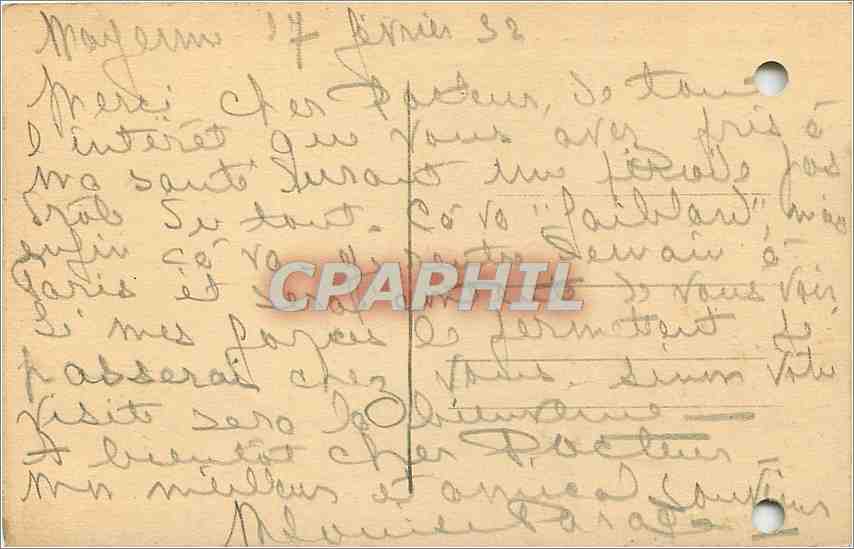 17 février 32
Merci cher Docteur, de tout
l'intérêt que vous avez pris à
ma santé durant une période pas
drôle du tout. Cà va "faiblard", mais
enfin cà va. Je rentre demain à
Paris et serai de vous voir
Si mes forces le permettent je
passerai chez vous. Sinon votre
visite sera la bienvenue
A bientôt cher Docteur
Mon meilleur et amical souvenir
CPARPHIL